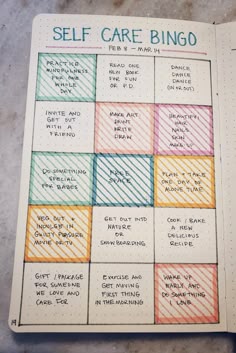 SELF CARE BINGO
FEB 8 - MAR 14
PRACTICE
MINDFULNESS
FOR ONE
WHOLE
DAY
READ ONE
NEW BOOK
FOR FUN
OR P.D.
DANCE,
DANCE,
DANCE
(IN OR OUT)
INVITE AND
GET OUT
WITH A
FRIEND
MAKE ART
DRAW
WRITE
DRAW
BEAUTIFY:
HAIR
NAILS
SKIN
MAKE UP
DO SOMETHING
SPECIAL
FOR BABES
FREE
SPACE
PLAN + TAKE
ONE DAY OF
ALONE TIME
VEG OUT +
INDULGE IN
GUILTY PLEASURE
MOVIE OR TV
GET OUT INTO
NATURE
OR
SNOWBOARDING
COOK / BAKE
A NEW
DELICIOUS
RECIPE
GIFT / PACKAGE
FOR SOMEONE
WE LOVE AND
CARE FOR
EXERCISE AND
GET MOVING
FIRST THING
IN THE
MORNING
WAKE UP
EARLY AND
DO SOMETHING
I LOVE